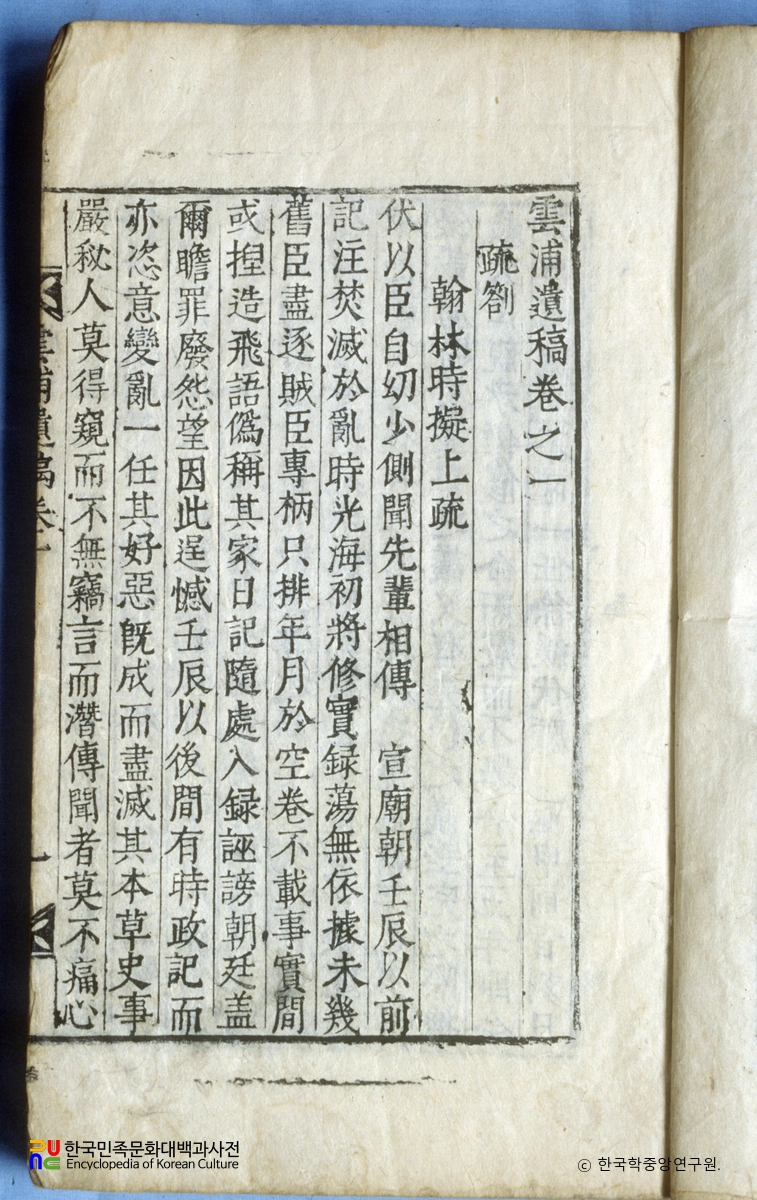 雲浦遺稿卷之一
疏劄
翰林時擬上疏
伏以臣自幼少側聞先輩相傳 宣廟朝壬辰以前
記注焚滅於亂時光海初將修實録蕩無依據未幾
舊臣盡逐賊臣專柄只排年月於空卷不載事實間
或揑造飛語僞稱其家日記隨處入録誣謗朝廷盖
爾瞻罪廢怨望因此逞憾壬辰以後間有時政記而
亦恣意變亂一任其好惡旣成而盡滅其本草史事
嚴秘人莫得窺而不無竊言而潛傳聞者莫不痛心
雲浦遺稿卷一
一
한국민족문화대백과사전
Encyclopedia of Korean Culture
ⓒ 한국학중앙연구원.